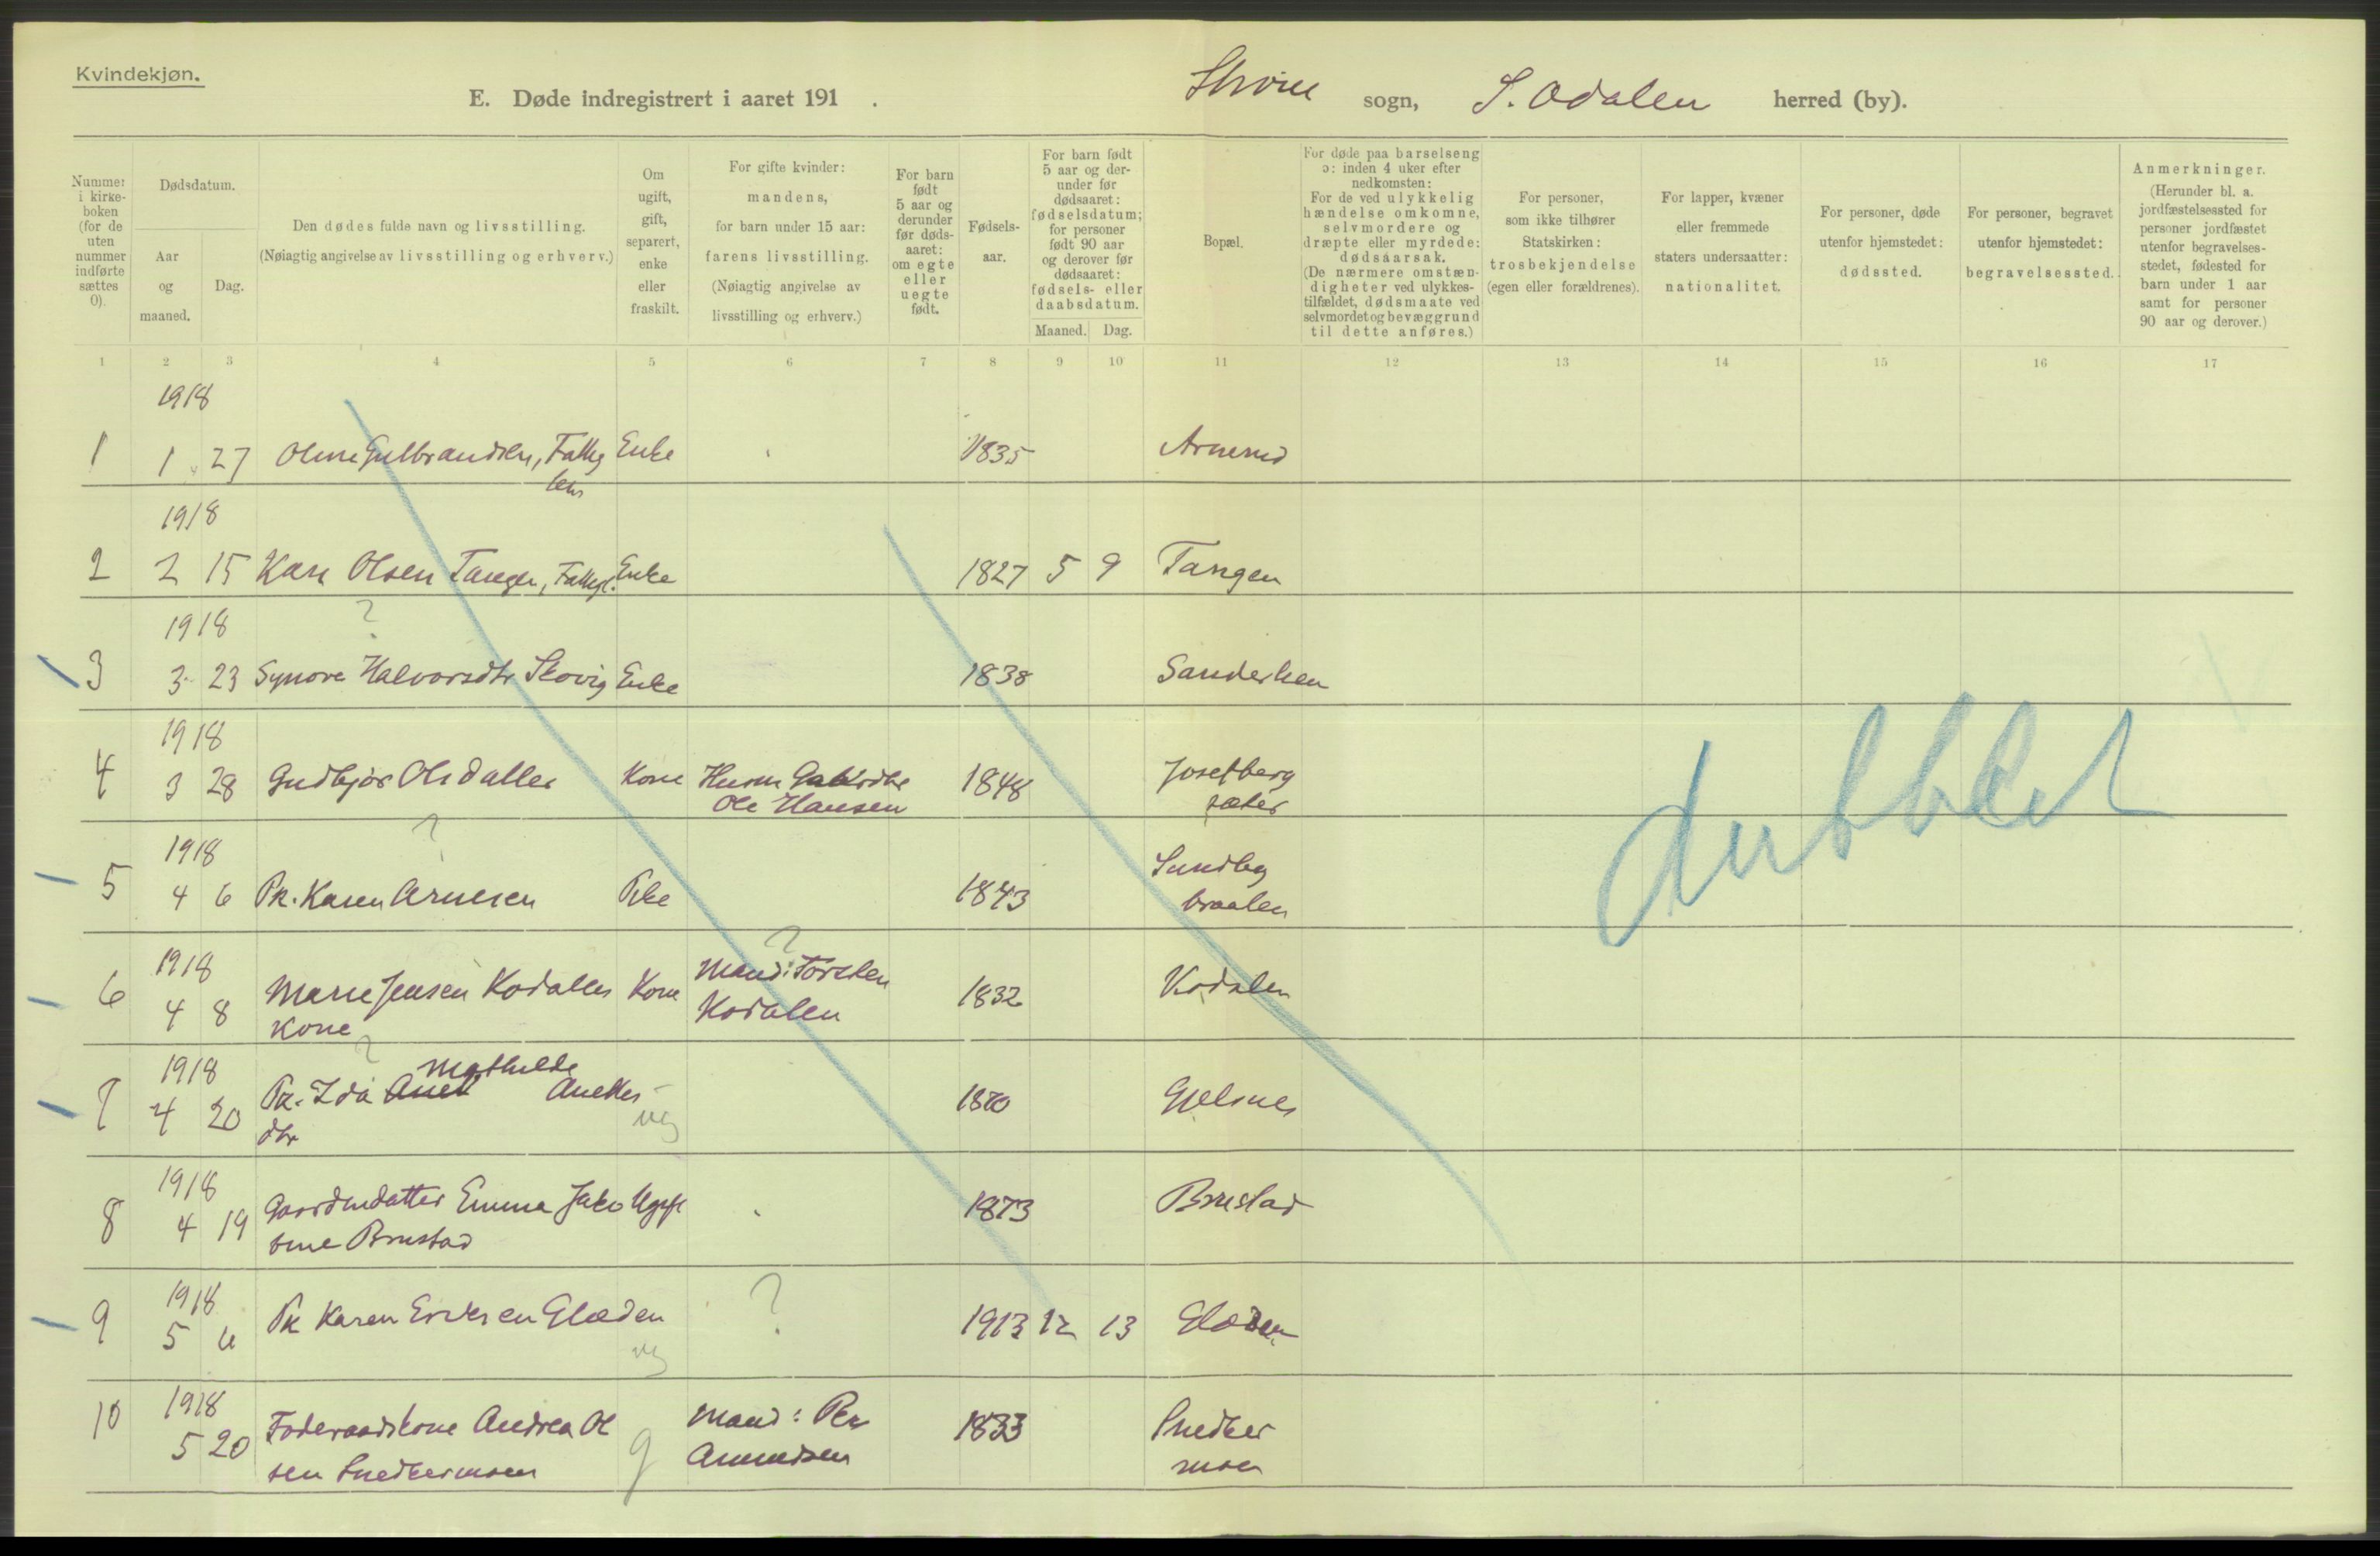 Kvindekjøn.
E. Døde indregistrert i aaret 191 .
Strøm sogn, S. Odalen herred (by).
Nummer i kirke-boken (for de uten nummer indførte sættes 0).
Dødsdatum.
Aar og maaned.
Dag.
Den dødes fulde navn og livsstilling.
(Nøiagtig angivelse av livsstilling og erhverv.)
Om ugift, gift, separert, enke eller fraskilt.
For gifte kvinder: mandens, for barn under 15 aar: farens livsstilling.
(Nøiagtig angivelse av livsstilling og erhverv.)
For barn født 5 aar og derunder før døds-aaret: om egte eller uegte født.
Fødsels-aar.
For barn født 5 aar og der-under før dødsaaret: fødselsdatum; for personer født 90 aar og derover før dødsaaret: fødsels- eller daabsdatum.
Maaned. Dag.
Bopæl.
For døde paa barselseng ɔ: inden 4 uker efter nedkomsten:
For de ved ulykkelig hændelse omkomne, selvmordere og dræpte eller myrdede: dødsaarsak.
(De nærmere omstæn-digheter ved ulykkes-tilfældet, dødsmaate ved selvmordet og bevæggrund til dette anføres.)
For personer, som ikke tilhører Statskirken: trosbekjendelse (egen eller forældrenes).
For lapper, kvæner eller fremmede staters undersaatter: nationalitet.
For personer, døde utenfor hjemstedet: dødssted.
For personer, begravet utenfor hjemstedet: begravelsessted.
Anmerkninger.
(Herunder bl. a. jordfæstelsessted for personer jordfæstet utenfor begravelses-stedet, fødested for barn under 1 aar samt for personer 90 aar og derover.)
1 2 3 4 5 6 7 8 9 10 11 12 13 14 15 16 17
1918
1 1 27 Gulbrandsen, Fattig Enke 1835
lem
1918
2 2 15 Kari Olsen Tangen, Enke 1827 5 9 Tangen
1918 ?
3 3 23 Synøve Halvorsdtr Skovig Enke 1838
1918
4 3 28 Kone 1848 Josefberg
Ole Hansen sæter
1918 ?
5 4 6 Pk. Karen Arnesen Pike 1843 Sundby
braaten
1918 ?
6 4 8 Marie Jensen Kodalen Kone Mand: Torsten 1832 Kodalen
Kone Kodalen
1918 ? Mathilde
7 4 20 Pk. Ida ug 1870 Gjelsnes
dtr
1918
8 4 19 Gaardmdatter Emma Jako Ugift 1873 Brustad
bine Brustad
1918 ?
9 5 6 Pk Karen Eriksen Glæden ug 1913 12 13 Glæden
1918
10 5 20 Føderaadskone Andrea Ol g Mand: Per 1833 Snedker
sen Snedkermoen Amundsen moen
dubblet